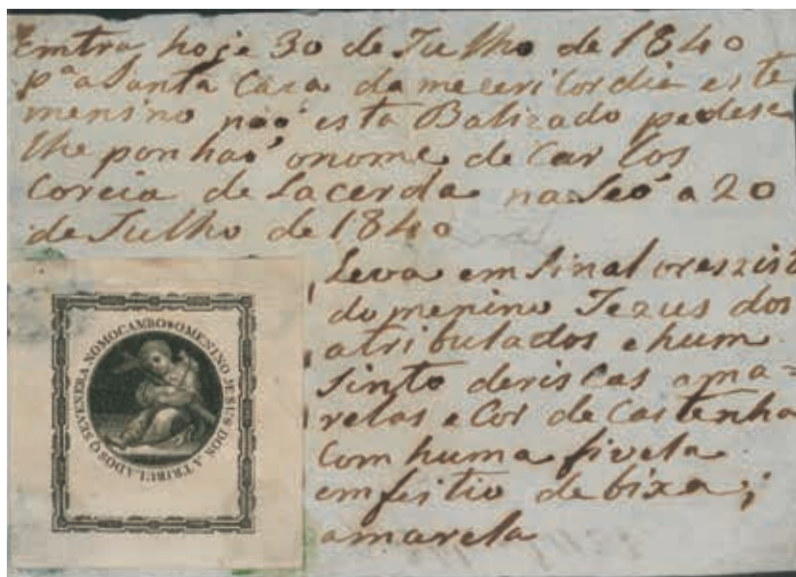 Emtra hoje 30 de Julho de 1840
pª a Santa Casa da mecericordia este
menino naõ esta Batizado pedese
lhe ponhaõ o nome de Carlos
Correia de Lacerda naseo a 20
de Julho de 1840
Leva em Sinal
do menino Jezus dos
atribulados e hum
Sinto de riscas ama=
relas e Cor de Castenha
Com huma fivela
em feitio de bixa;
amarela
O MENINO JESUS DOS ATRIBULADOS Q SE VENERA NO MOCAMBO